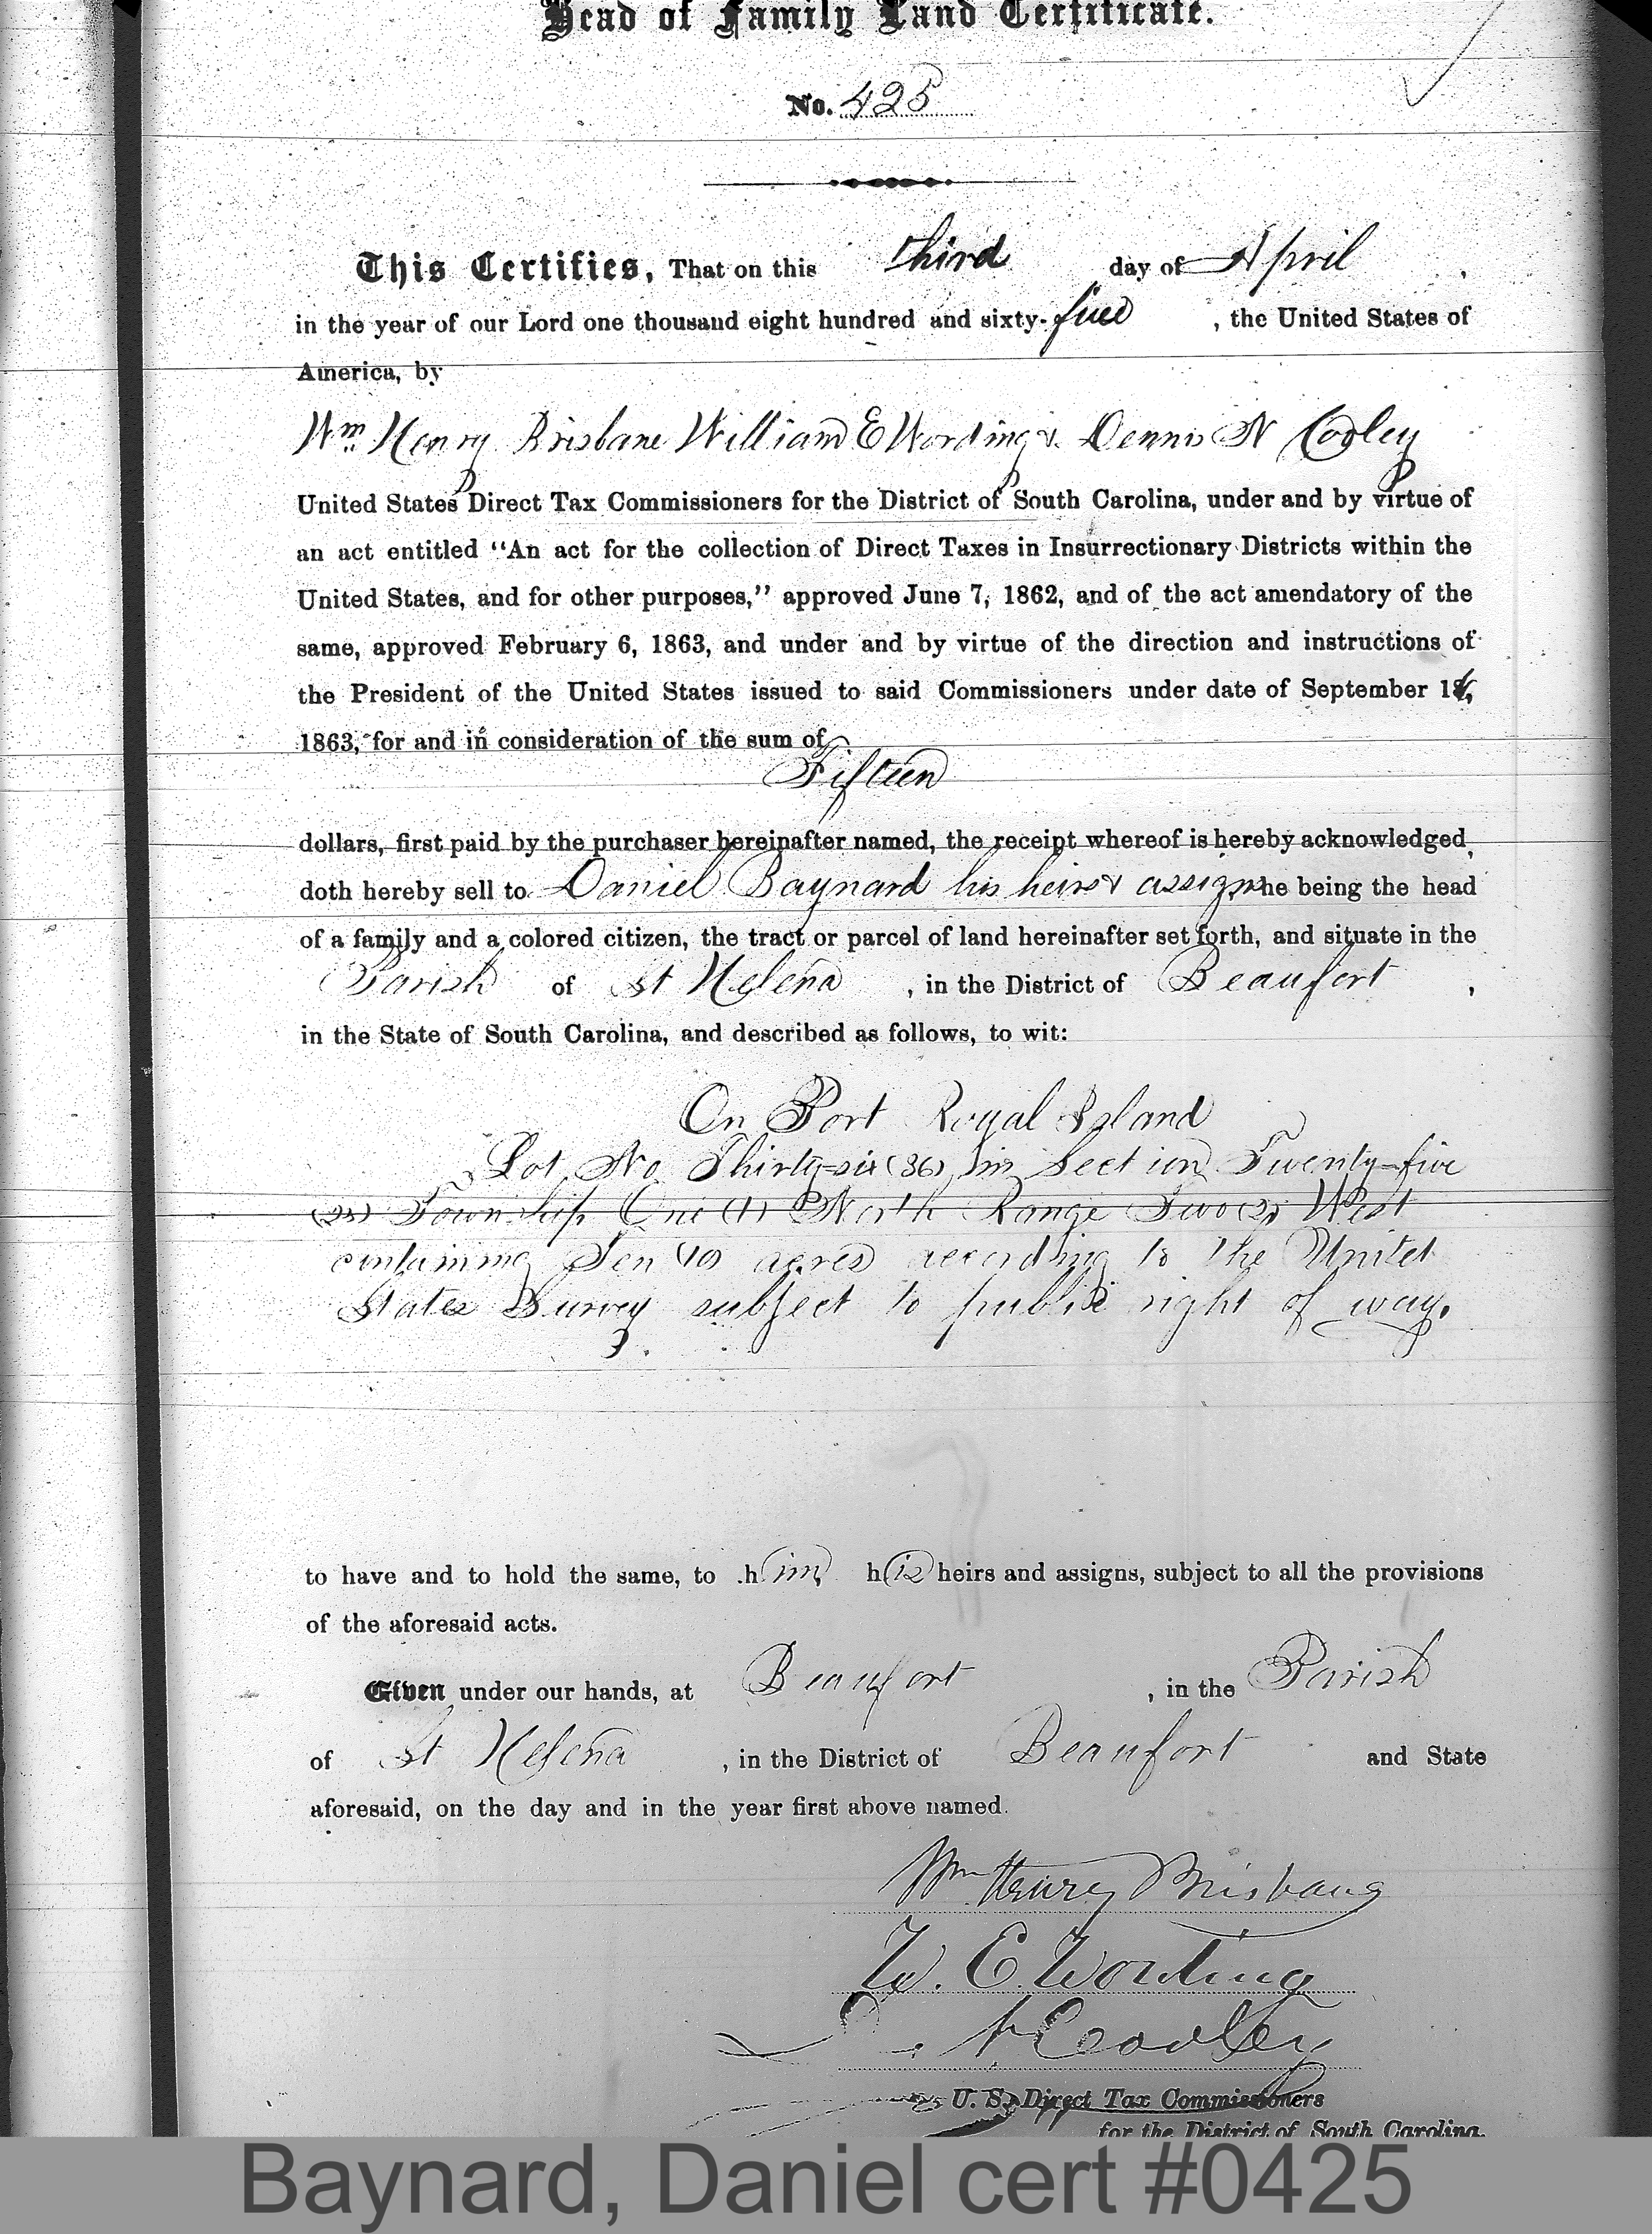 Head of Family Land Certificate.
No. 425
This Certifies, That on this third day of April,
in the year of our Lord one thousand eight hundred and sixty-five, the United States of
America, by
Wm Henry Brisbane William E Wording & Dennis N Cooley
United States Direct Tax Commissioners for the District of South Carolina, under and by virtue of
an act entitled "An act for the collection of Direct Taxes in Insurrectionary Districts within the
United States, and for other purposes," approved June 7, 1862, and of the act amendatory of the
same, approved February 6, 1863, and under and by virtue of the direction and instructions of
the President of the United States issued to said Commissioners under date of September 16,
1863, for and in consideration of the sum of
Fifteen
dollars, first paid by the purchaser hereinafter named, the receipt whereof is hereby acknowledged,
doth hereby sell to Daniel Baynard his heirs & assigns he being the head
of a family and a colored citizen, the tract or parcel of land hereinafter set forth, and situate in the
Parish of St Helena, in the District of Beaufort,
in the State of South Carolina, and described as follows, to wit:
On Port Royal Island
Lot No Thirty-six (36) in Section Twenty-five
(25) Township One (1) North Range Two (2) West
containing Ten (10) acres according to the United
States Survey subject to public right of way.
to have and to hold the same, to him his heirs and assigns, subject to all the provisions
of the aforesaid acts.
Given under our hands, at Beaufort, in the Parish
of St Helena, in the District of Beaufort and State
aforesaid, on the day and in the year first above named.
Wm Henry Brisbane
W. E. Wording
D. N Cooley
U. S. Direct Tax Commissioners
for the District of South Carolina.
Baynard, Daniel cert #0425